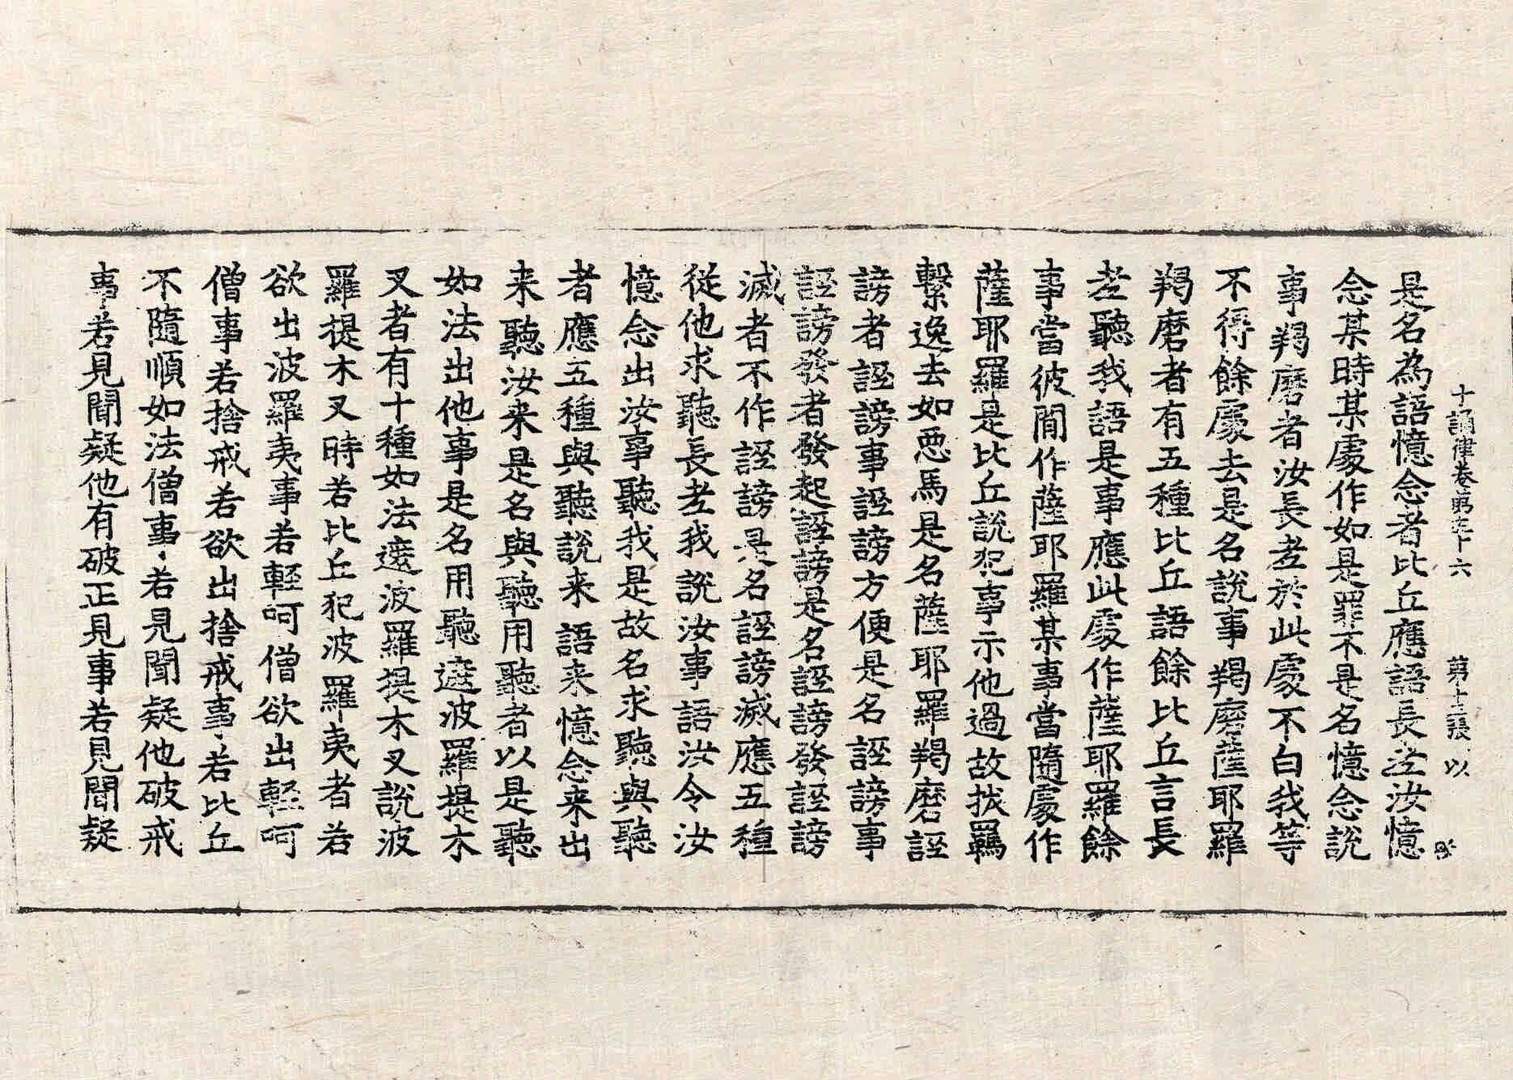 十誦律卷第五十六 第十二張 以
是名為語憶念者比丘應語長老汝憶
念某時某處作如是罪不是名憶念說
事羯磨者汝長老於此處不白我等
不得餘處去是名說事羯磨薩耶羅
羯磨者有五種比丘語餘比丘言長
老聽我語是事應此處作薩耶羅餘
事當彼間作薩耶羅某事當隨處作
薩耶羅是比丘說犯事示他過故拔羈
繫逸去如惡馬是名薩耶羅羯磨誣
謗者誣謗事誣謗方便是名誣謗事
誣謗發者發起誣謗是名誣謗發誣謗
滅者不作誣謗是名誣謗滅應五種
從他求聽長老我說汝事語汝令汝
憶念出汝事聽我是故名求聽與聽
者應五種與聽說来語来憶念来出
来聽汝来是名與聽用聽者以是聽
如法出他事是名用聽遮波羅提木
叉者有十種如法遮波羅提木叉說波
羅提木叉時若比丘犯波羅夷者若
欲出波羅夷事若輕呵僧欲出輕呵
僧事若捨戒若欲出捨戒事若比丘
不隨順如法僧事若見聞疑他破戒
事若見聞疑他有破正見事若見聞疑